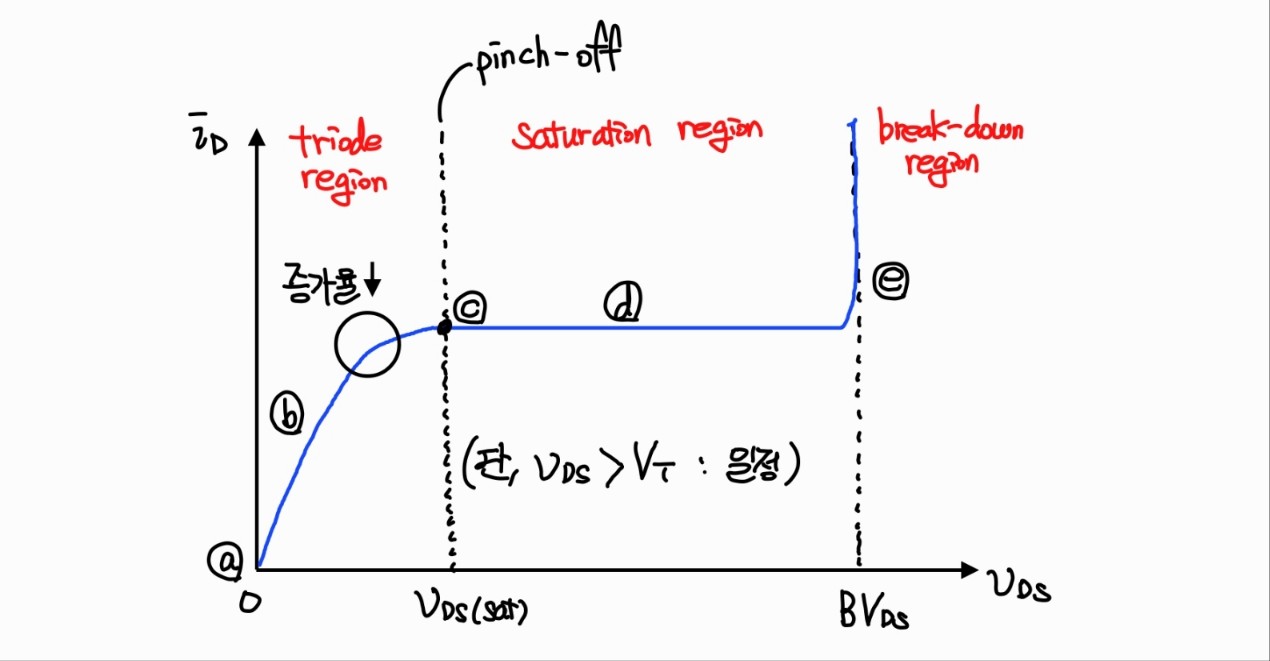 pinch-off
īD
triode
region
saturation region
break-down
region
증가율↓
ⓒ
ⓓ
ⓔ
ⓑ
(단, VDS > VT : 일정)
ⓐ
0
VDS(sat)
BVDS
VDS